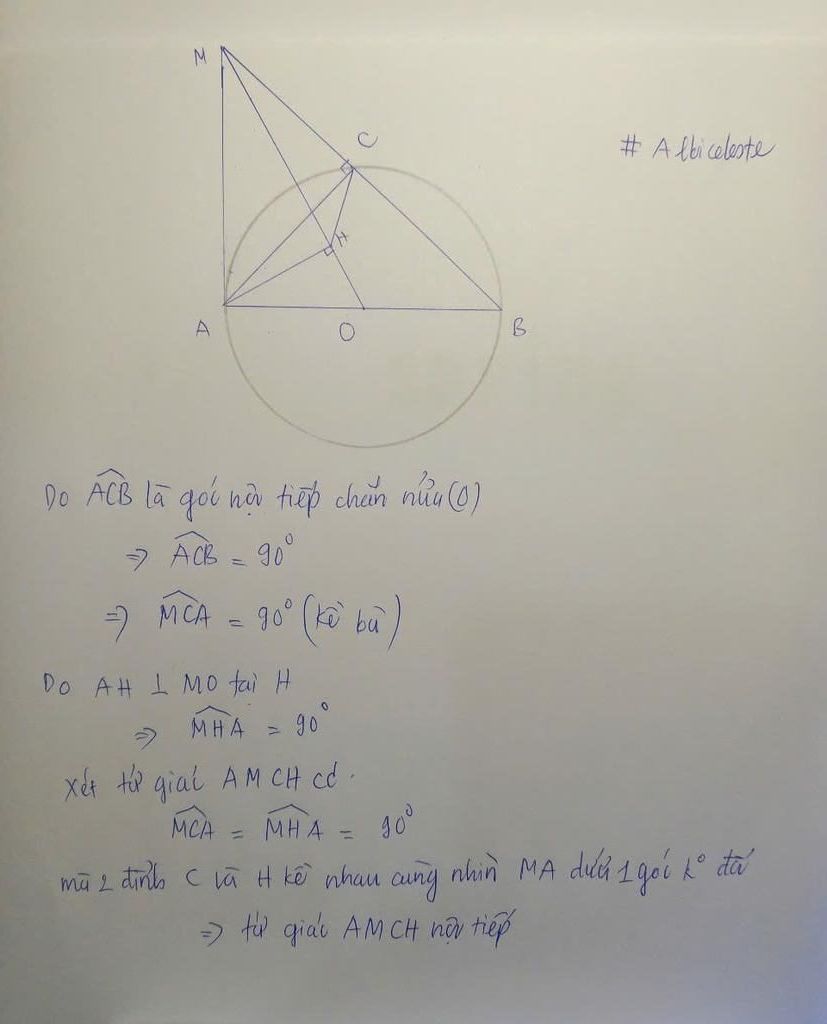 M
C
# Albiceleste
H
A
O
B
Do ACB là góc nội tiếp chắn nửa (O)
=> ACB = 90°
=> MCA = 90° (kề bù)
Do AH ⊥ MO tại H
=> MHA = 90°
Xét tứ giác AMCH có
MCA = MHA = 90°
mà 2 đỉnh C và H kề nhau cùng nhìn MA dưới 1 góc k° đổi
=> tứ giác AMCH nội tiếp